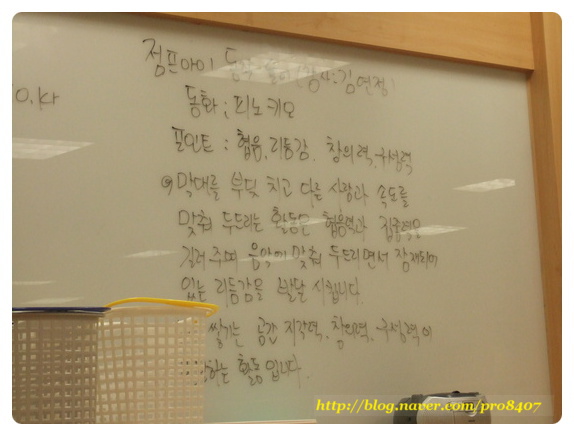 점프아이 동화 놀이 (강사:김연정)
o.kr
동화 : 피노키오
포인트 : 협응, 리듬감, 창의력, 구성력
막대를 부딪 치고 다른 사람과 속도를
맞춰 두드리는 활동은 협응력과 집중력을
길러 주며 음악에 맞춰 두드리면서 잠재되어
있는 리듬감을 발달 시킵니다.
쌓기는 공간 지각력, 창의력, 구성력이
하는 활동입니다.
http://blog.naver.com/pro8407